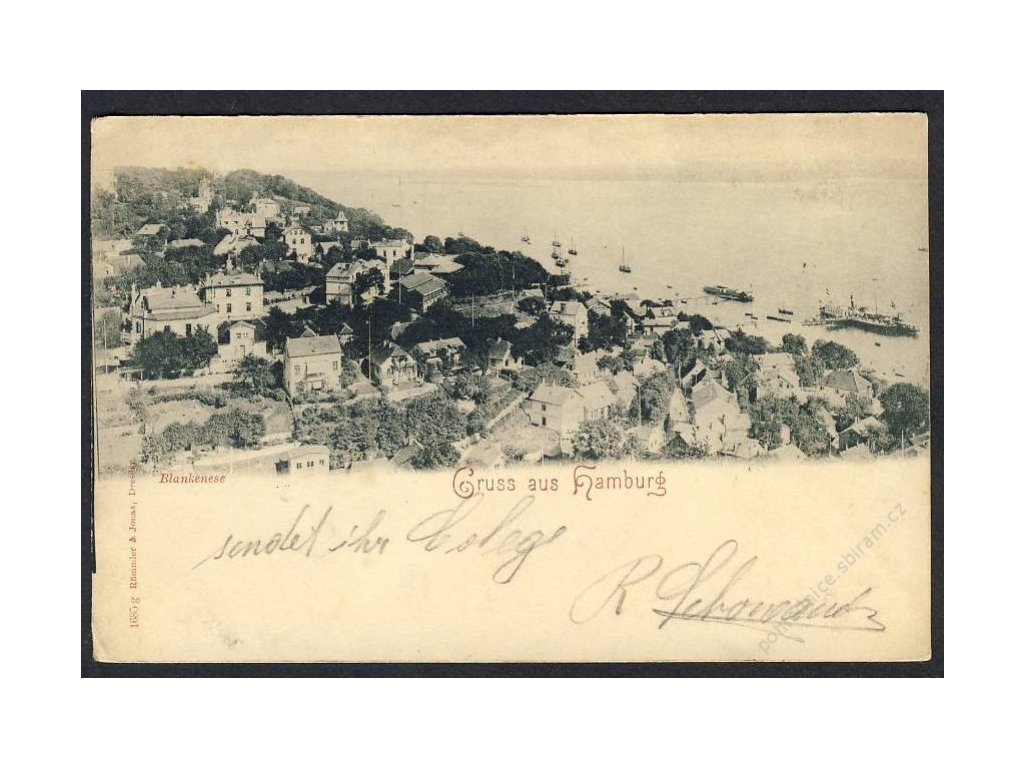 Blankenese
Gruss aus Hamburg
sendet ihr Colege
R
1685 g Römmler & Jonas, Dresden
pohlednice.sbiram.cz